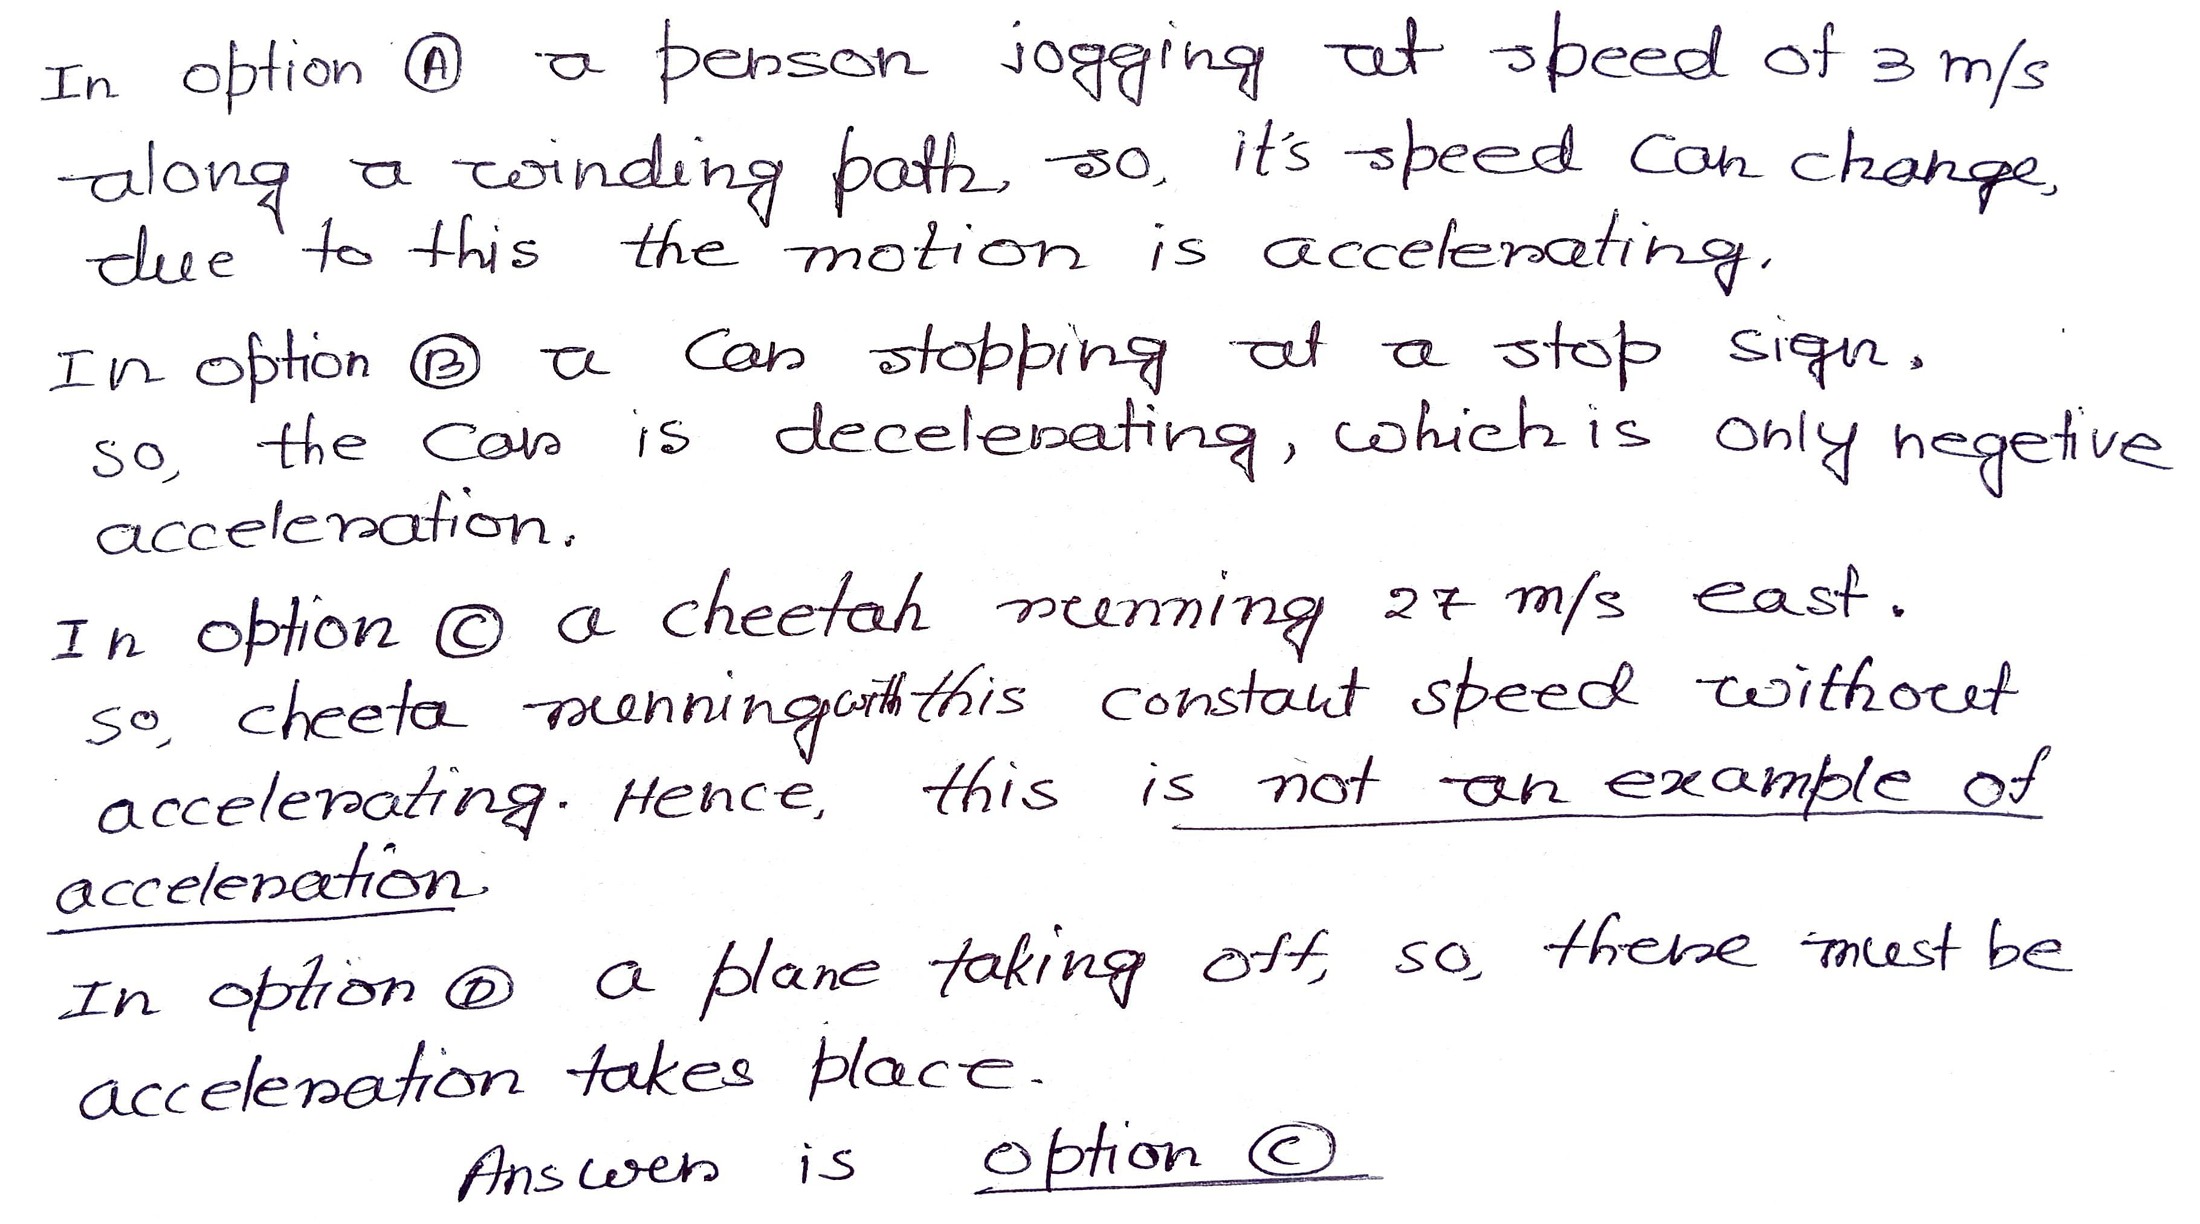 In option Ⓐ a person jogging at speed of 3 m/s
along a winding path, so, it's speed can change,
due to this the motion is accelerating.
In option Ⓑ a car stopping at a stop sign.
so, the car is decelerating, which is only negetive
acceleration.
In option Ⓒ a cheetah running 27 m/s east.
so, cheeta running with this constant speed without
accelerating. Hence, this is not an example of
acceleration
In option Ⓓ a plane taking off, so, there must be
acceleration takes place.
Answer is option Ⓒ